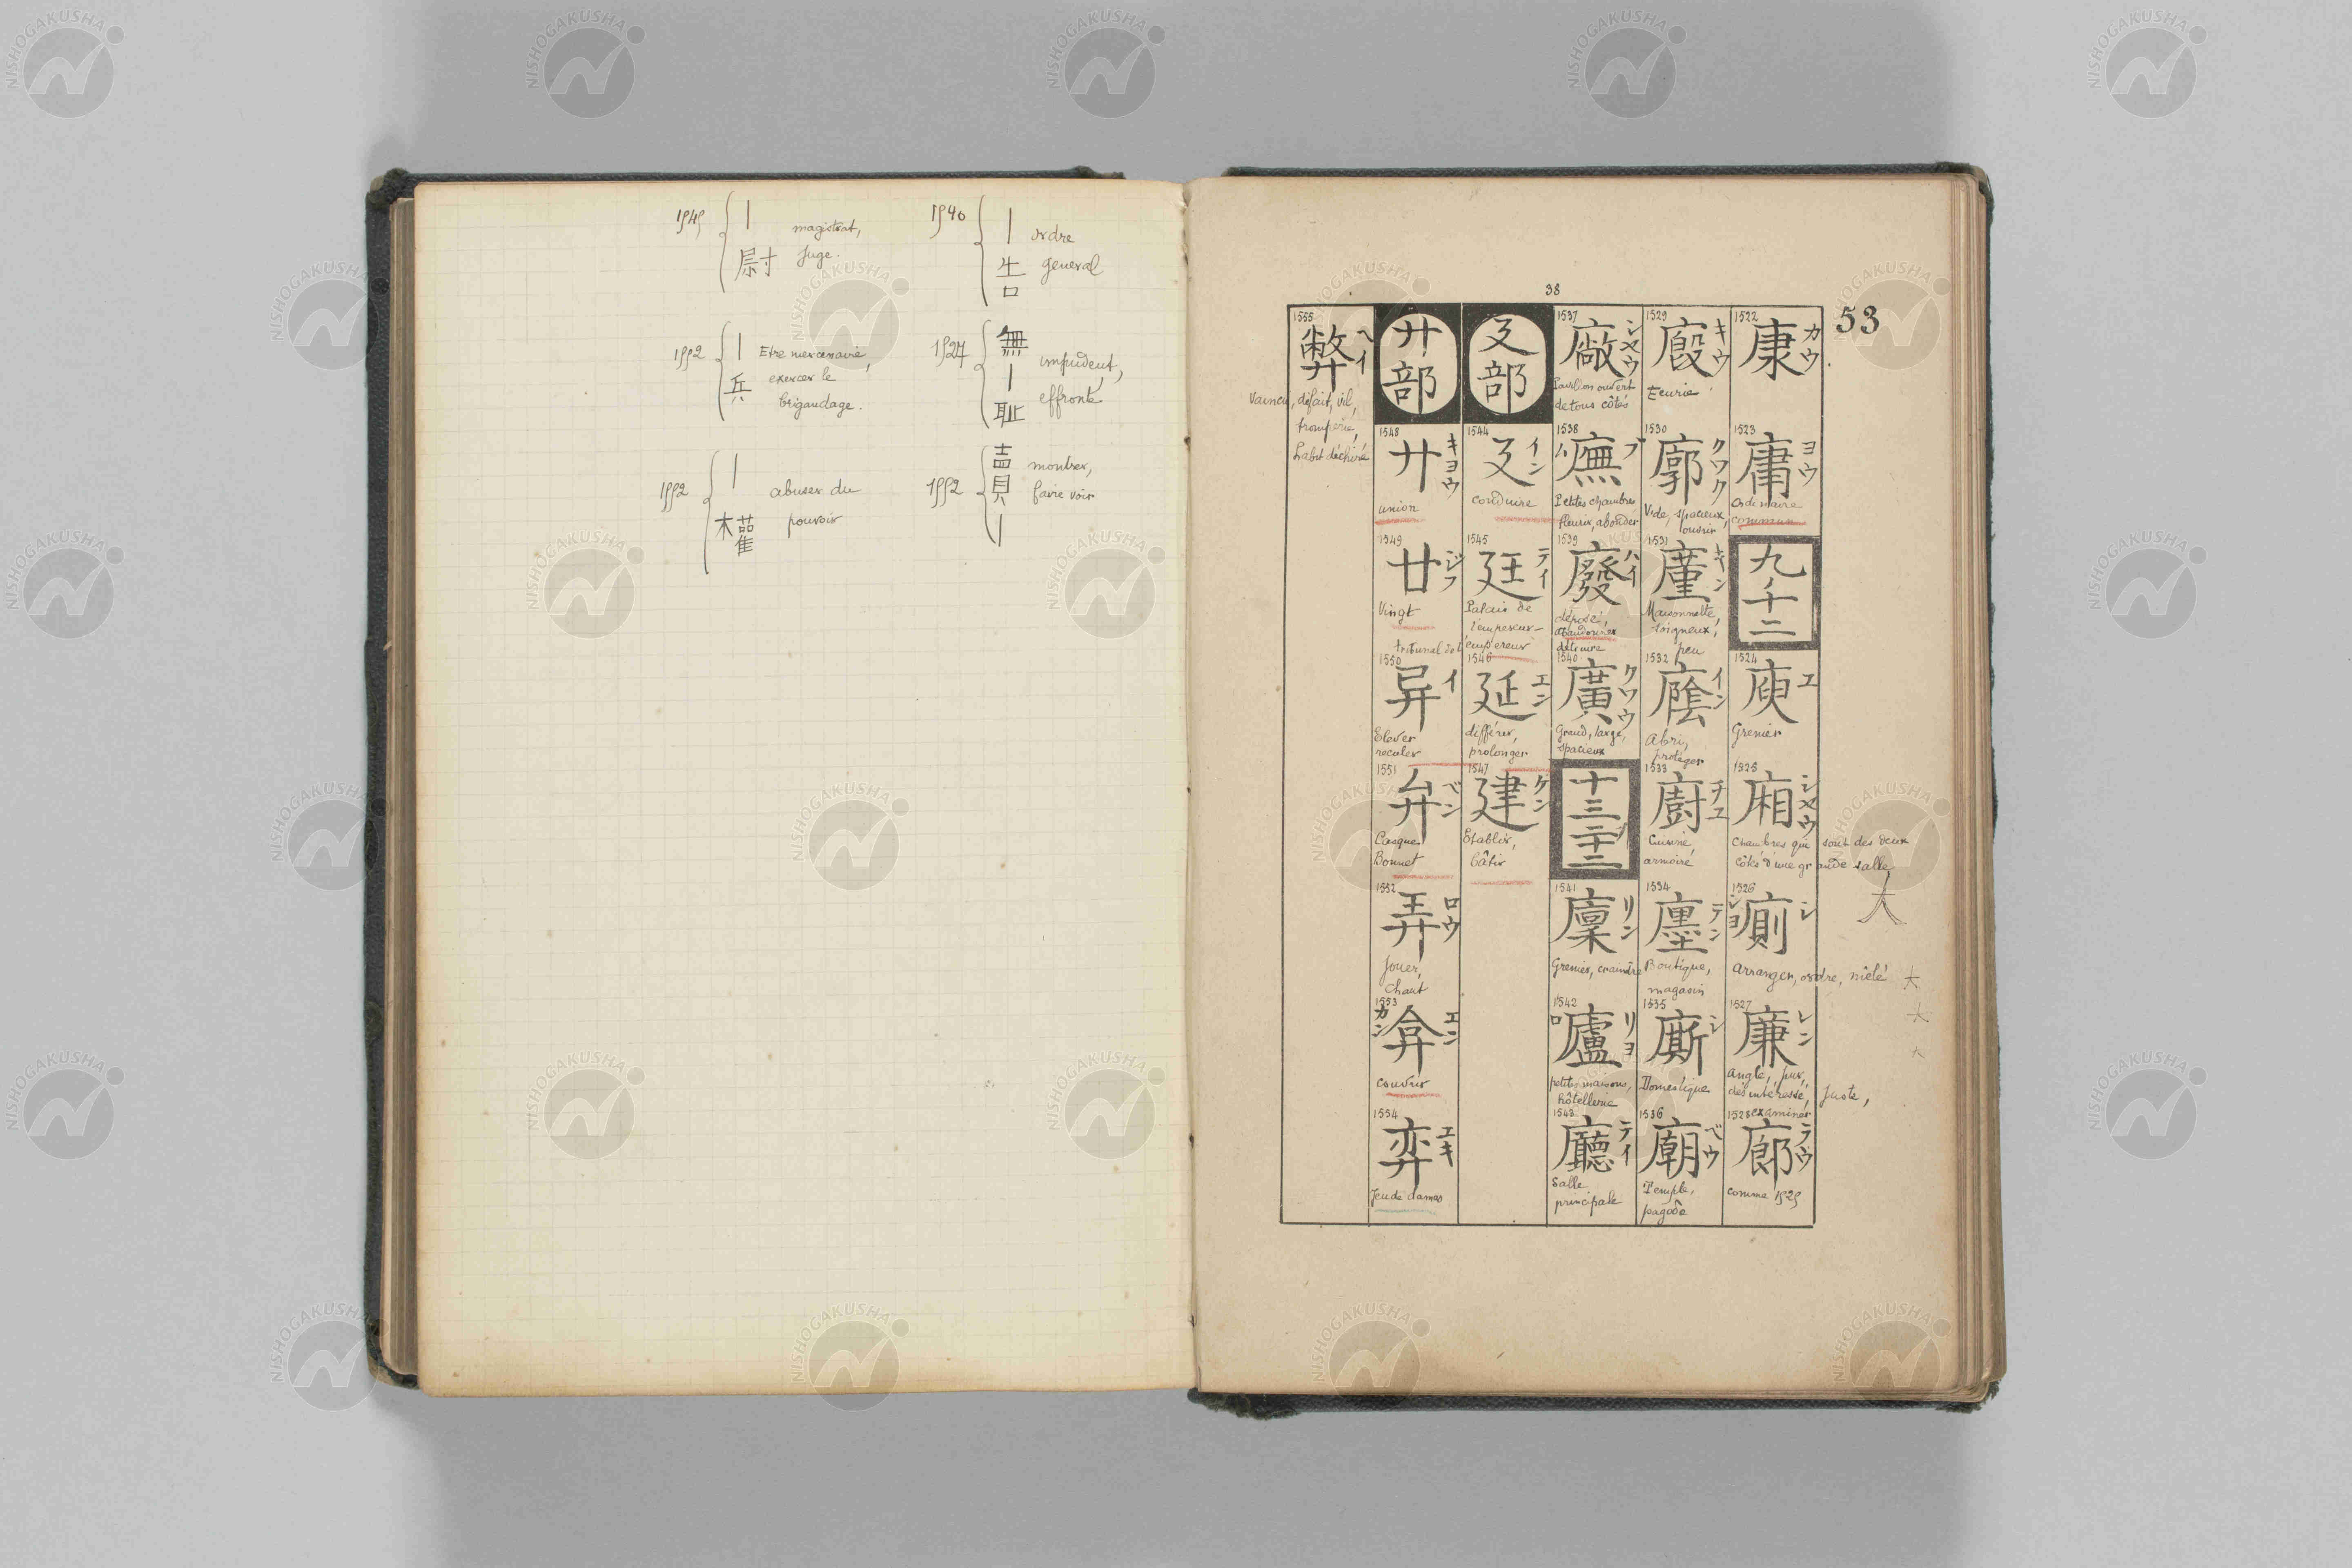 1540
| ordre
牛 general
口
1527
無
| impudent,
恥 effronté
1552
賣 montrer,
| faire voir
1545
| magistrat,
尉 juge.
1552
| Etre mercenaire,
兵 exercer le
brigandage.
1552
| abuser du
權 pouvoir
38
53
1522
康 カウ
1523
庸 ヨウ
Ordinaire
commun
九ノ十二
1524
庾 エ
Grenier
1525
廂 シヤウ
Chambres qui sont des deux
côtés d'une grande salle
大
1526
廁 シ
シヨ
Arranger, ordre, mêlé
大
大
大
1527
廉 レン
Angle, pur,
désintéressé, juste,
examiner
1528
廊 ラウ
comme 1525
1529
廏 キウ
Ecurie
1530
廓 クワク
Vide, spacieux,
ouvrir
1531
廑 キン
Maisonnette,
soigneux,
peu
1532
廕 イン
Abri,
protéger
1533
廚 チユ
Cuisine,
armoire
1534
廛 テン
Boutique,
magasin
1535
廝 シ
Domestique
1536
廟 ベウ
Temple,
pagode
1537
廠 シヤウ
Pavillon ouvert
de tous côtés
1538
廡 ブ
ム
Petites chambres
fleurir, abonder
1539
廢 ハイ
déposé,
abandonner
détruire
1540
廣 クワウ
Grand, large,
spacieux
十三ノ二十二
1541
廩 リン
Grenier, craindre
1542
廬 リヨ
ロ
petites maisons,
hôtellerie
1543
廳 テイ
Salle
principale
廴部
1544
廴 イン
conduire
1545
廷 テイ
Palais de
l'empereur –
tribunal de l'empereur
1546
延 エン
différer,
prolonger
1547
建 ケン
Etablir,
bâtir
廾部
1548
廾 キヨウ
union
1549
廿 ジフ
Vingt
1550
异 イ
Elever
reculer
1551
弁 ベン
Casque
Bonnet
1552
弄 ロウ
Jouer,
Chant
1553
弇 エン
カン
couvrir
1554
弈 エキ
Jeu de dames
1555
弊 ヘイ
Vaincu, défait, vil,
tromperie,
habit déchiré